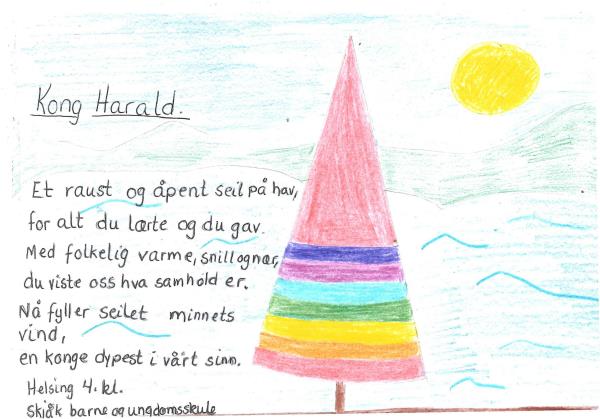 Kong Harald.
Et raust og åpent seil på hav,
for alt du lærte og du gav.
Med folkelig varme, snill og nær,
du viste oss hva samhold er.
Nå fyller seilet minnets
vind,
en konge dypest i vårt sinn.
Helsing 4. kl.
Skjåk barne og ungdomsskule